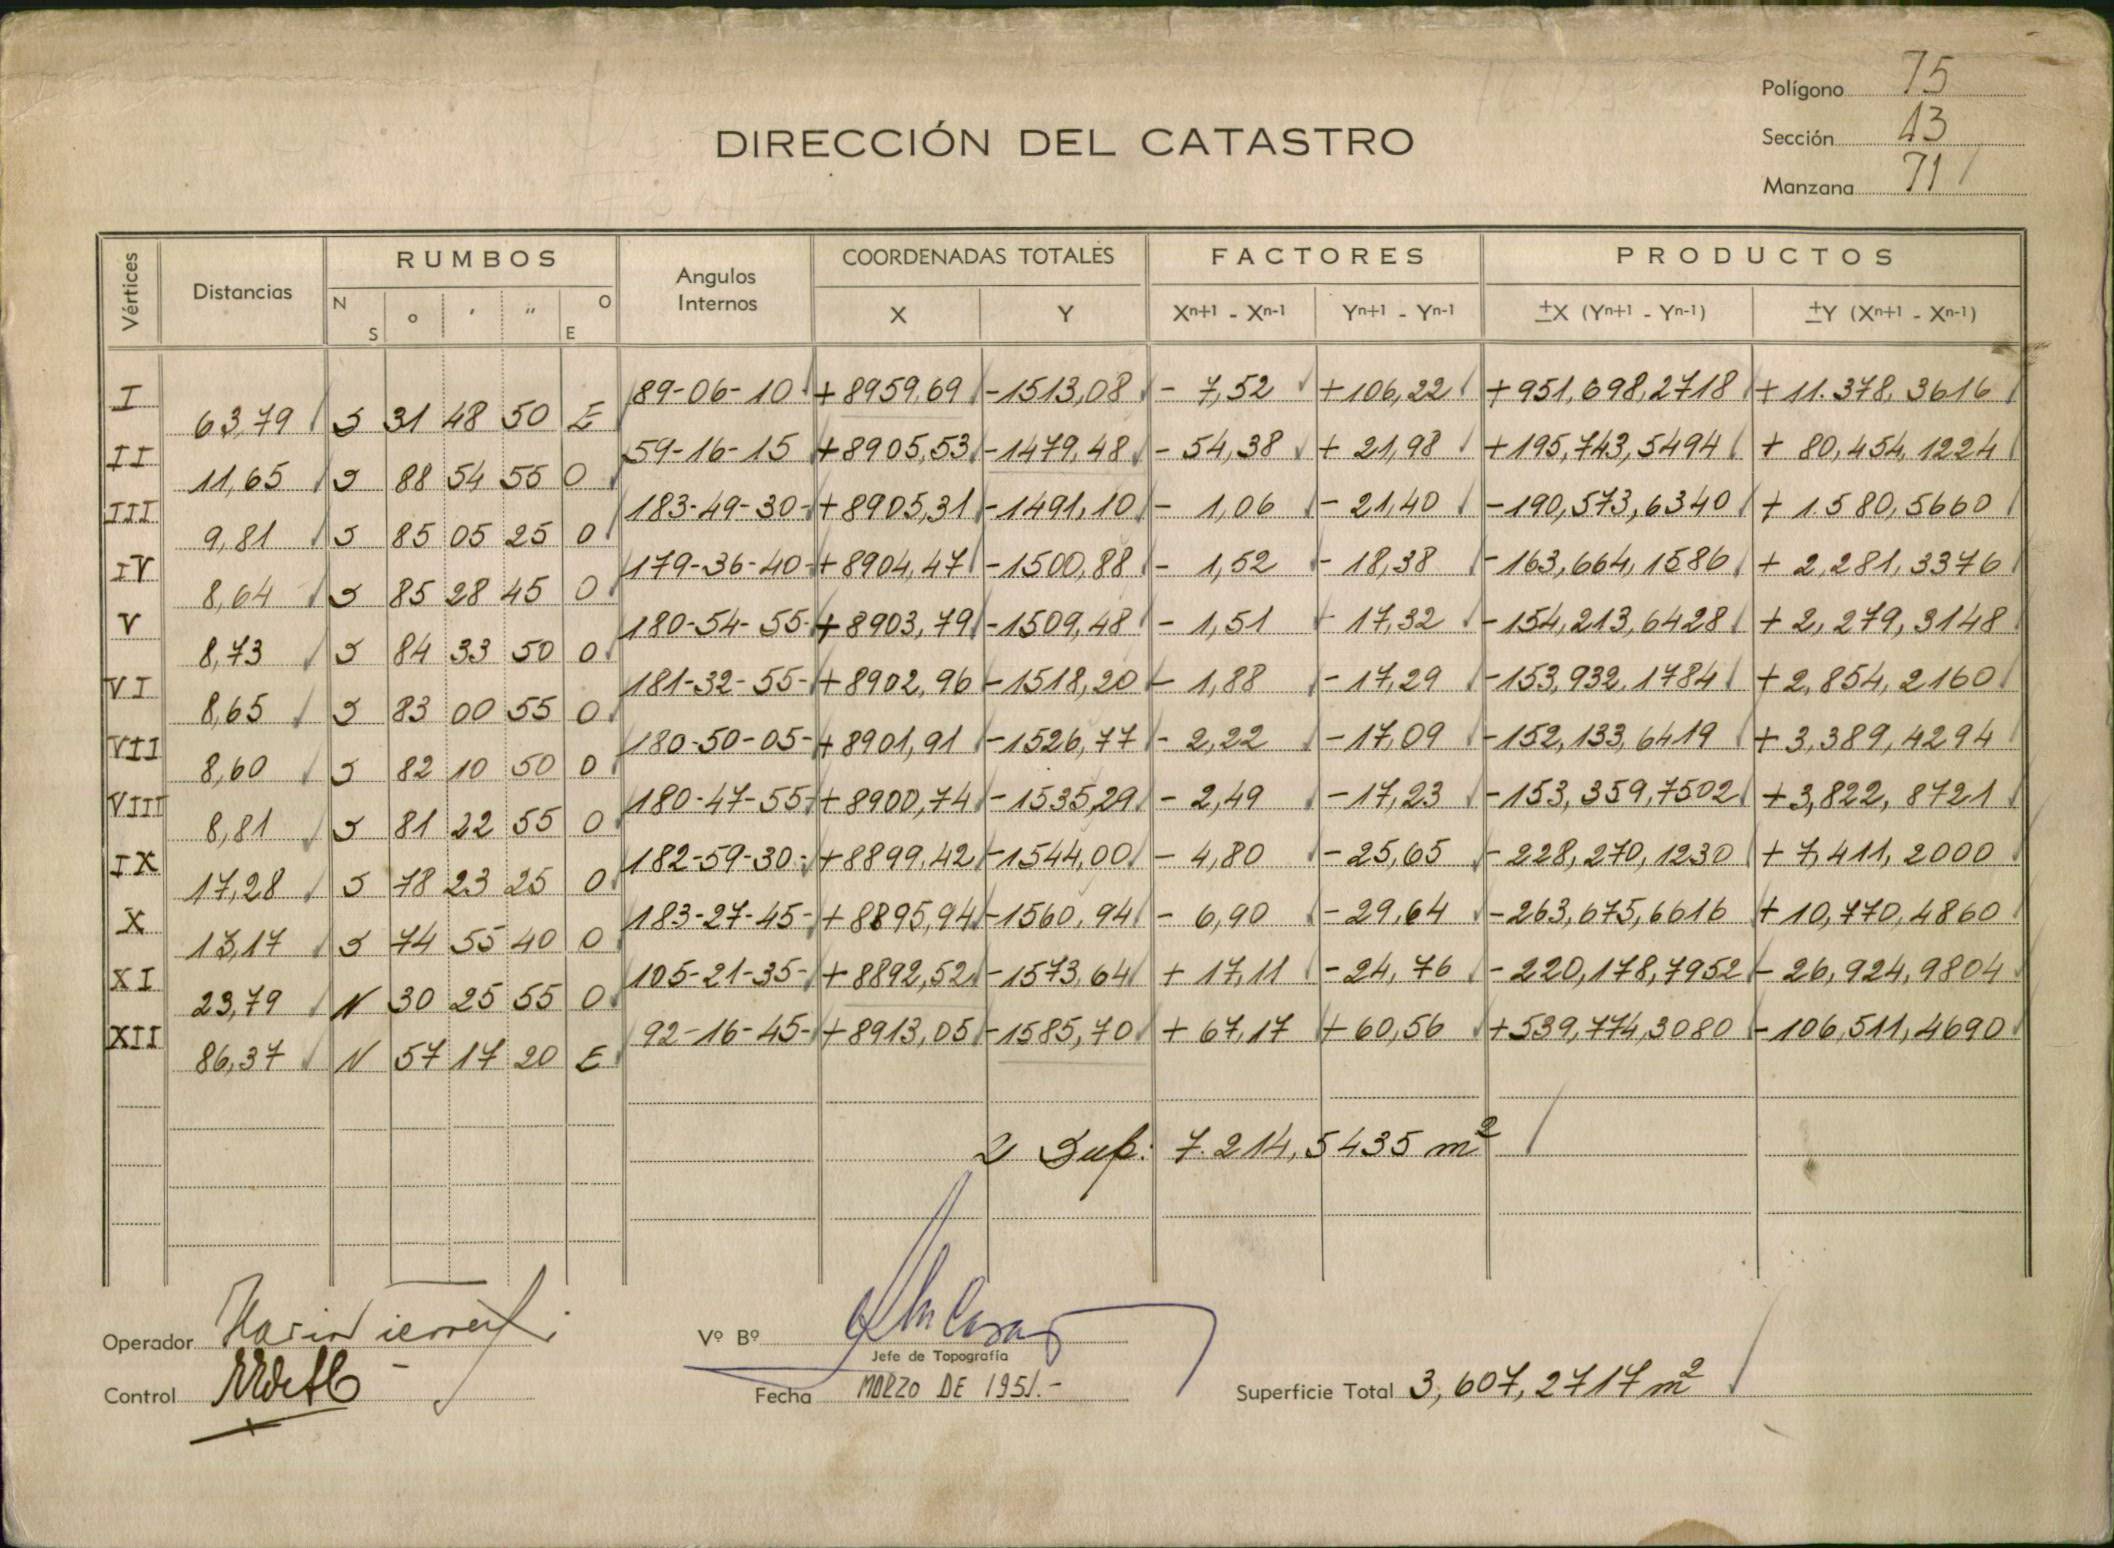 Polígono 75
DIRECCIÓN DEL CATASTRO
Sección 43
Manzana 71
Vértices Distancias RUMBOS Angulos Internos COORDENADAS TOTALES FACTORES PRODUCTOS
N S o ' " O E X Y Xn+1 - Xn-1 Yn+1 - Yn-1 ±X (Yn+1 - Yn-1) ±Y (Xn+1 - Xn-1)
I 89-06-10 +8959,69 -1513,08 - 7,52 +106,22 +951,698,2718 +11.378,3616
63,79 S 31 48 50 E
II 59-16-15 +8905,53 -1479,48 - 54,38 + 21,98 +195,743,5494 + 80,454,1224
11,65 S 88 54 55 O
III 183-49-30- +8905,31 -1491,10 - 1,06 - 21,40 -190,573,6340 + 1580,5660
9,81 S 85 05 25 O
IV 179-36-40- +8904,47 -1500,88 - 1,52 - 18,38 -163,664,1586 + 2,281,3376
8,64 S 85 28 45 O
V 180-54-55- +8903,79 -1509,48 - 1,51 - 17,32 -154,213,6428 + 2,279,3148
8,73 S 84 33 50 O
VI 181-32-55- +8902,96 -1518,20 - 1,88 - 17,29 -153,932,1784 +2,854,2160
8,65 S 83 00 55 O
VII 180-50-05- +8901,91 -1526,77 - 2,22 -17,09 -152,133,6419 +3,389,4294
8,60 S 82 10 50 O
VIII 180-47-55- +8900,74 -1535,29 - 2,49 -17,23 -153,359,7502 +3,822,8721
8,81 S 81 22 55 O
IX 182-59-30- +8899,42 -1544,00 - 4,80 -25,65 -228,270,1230 +7,411,2000
17,28 S 78 23 25 O
X 183-27-45- +8895,94 -1560,94 - 6,90 -29,64 -263,675,6616 +10,770,4860
13,17 S 74 55 40 O
XI 105-21-35- +8892,52 -1573,64 + 17,11 -24,76 -220,178,7952 - 26,924,9804
23,79 N 30 25 55 O
XII 92-16-45- +8913,05 -1585,70 + 67,17 +60,56 +539,774,3080 -106,511,4690
86,37 N 57 17 20 E
2 Sup: 7.214,5435 m²
Operador
Vº Bº
Jefe de Topografía
Control
Fecha MARZO DE 1951.-
Superficie Total 3,607,2717 m²